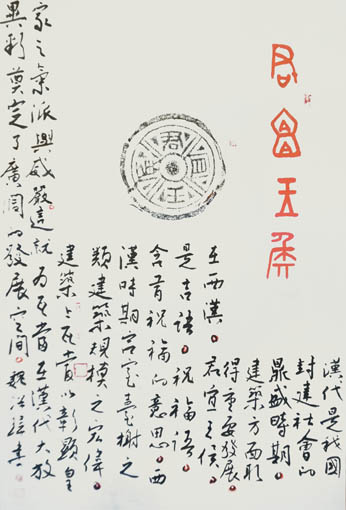 君宜王侯
君宜王侯
漢代是我國
封建社會的
鼎盛時期。
建築方面取
得重要發展。
在西漢。君宜王侯。
是吉語。祝福語。
含有祝福的意思。西
漢時期宮室臺榭之
類建築規模之宏偉。
建築上瓦當以彰顯皇
家之氣派與威嚴這就為瓦當在漢代大放
異彩奠定了廣闊的發展空間。書